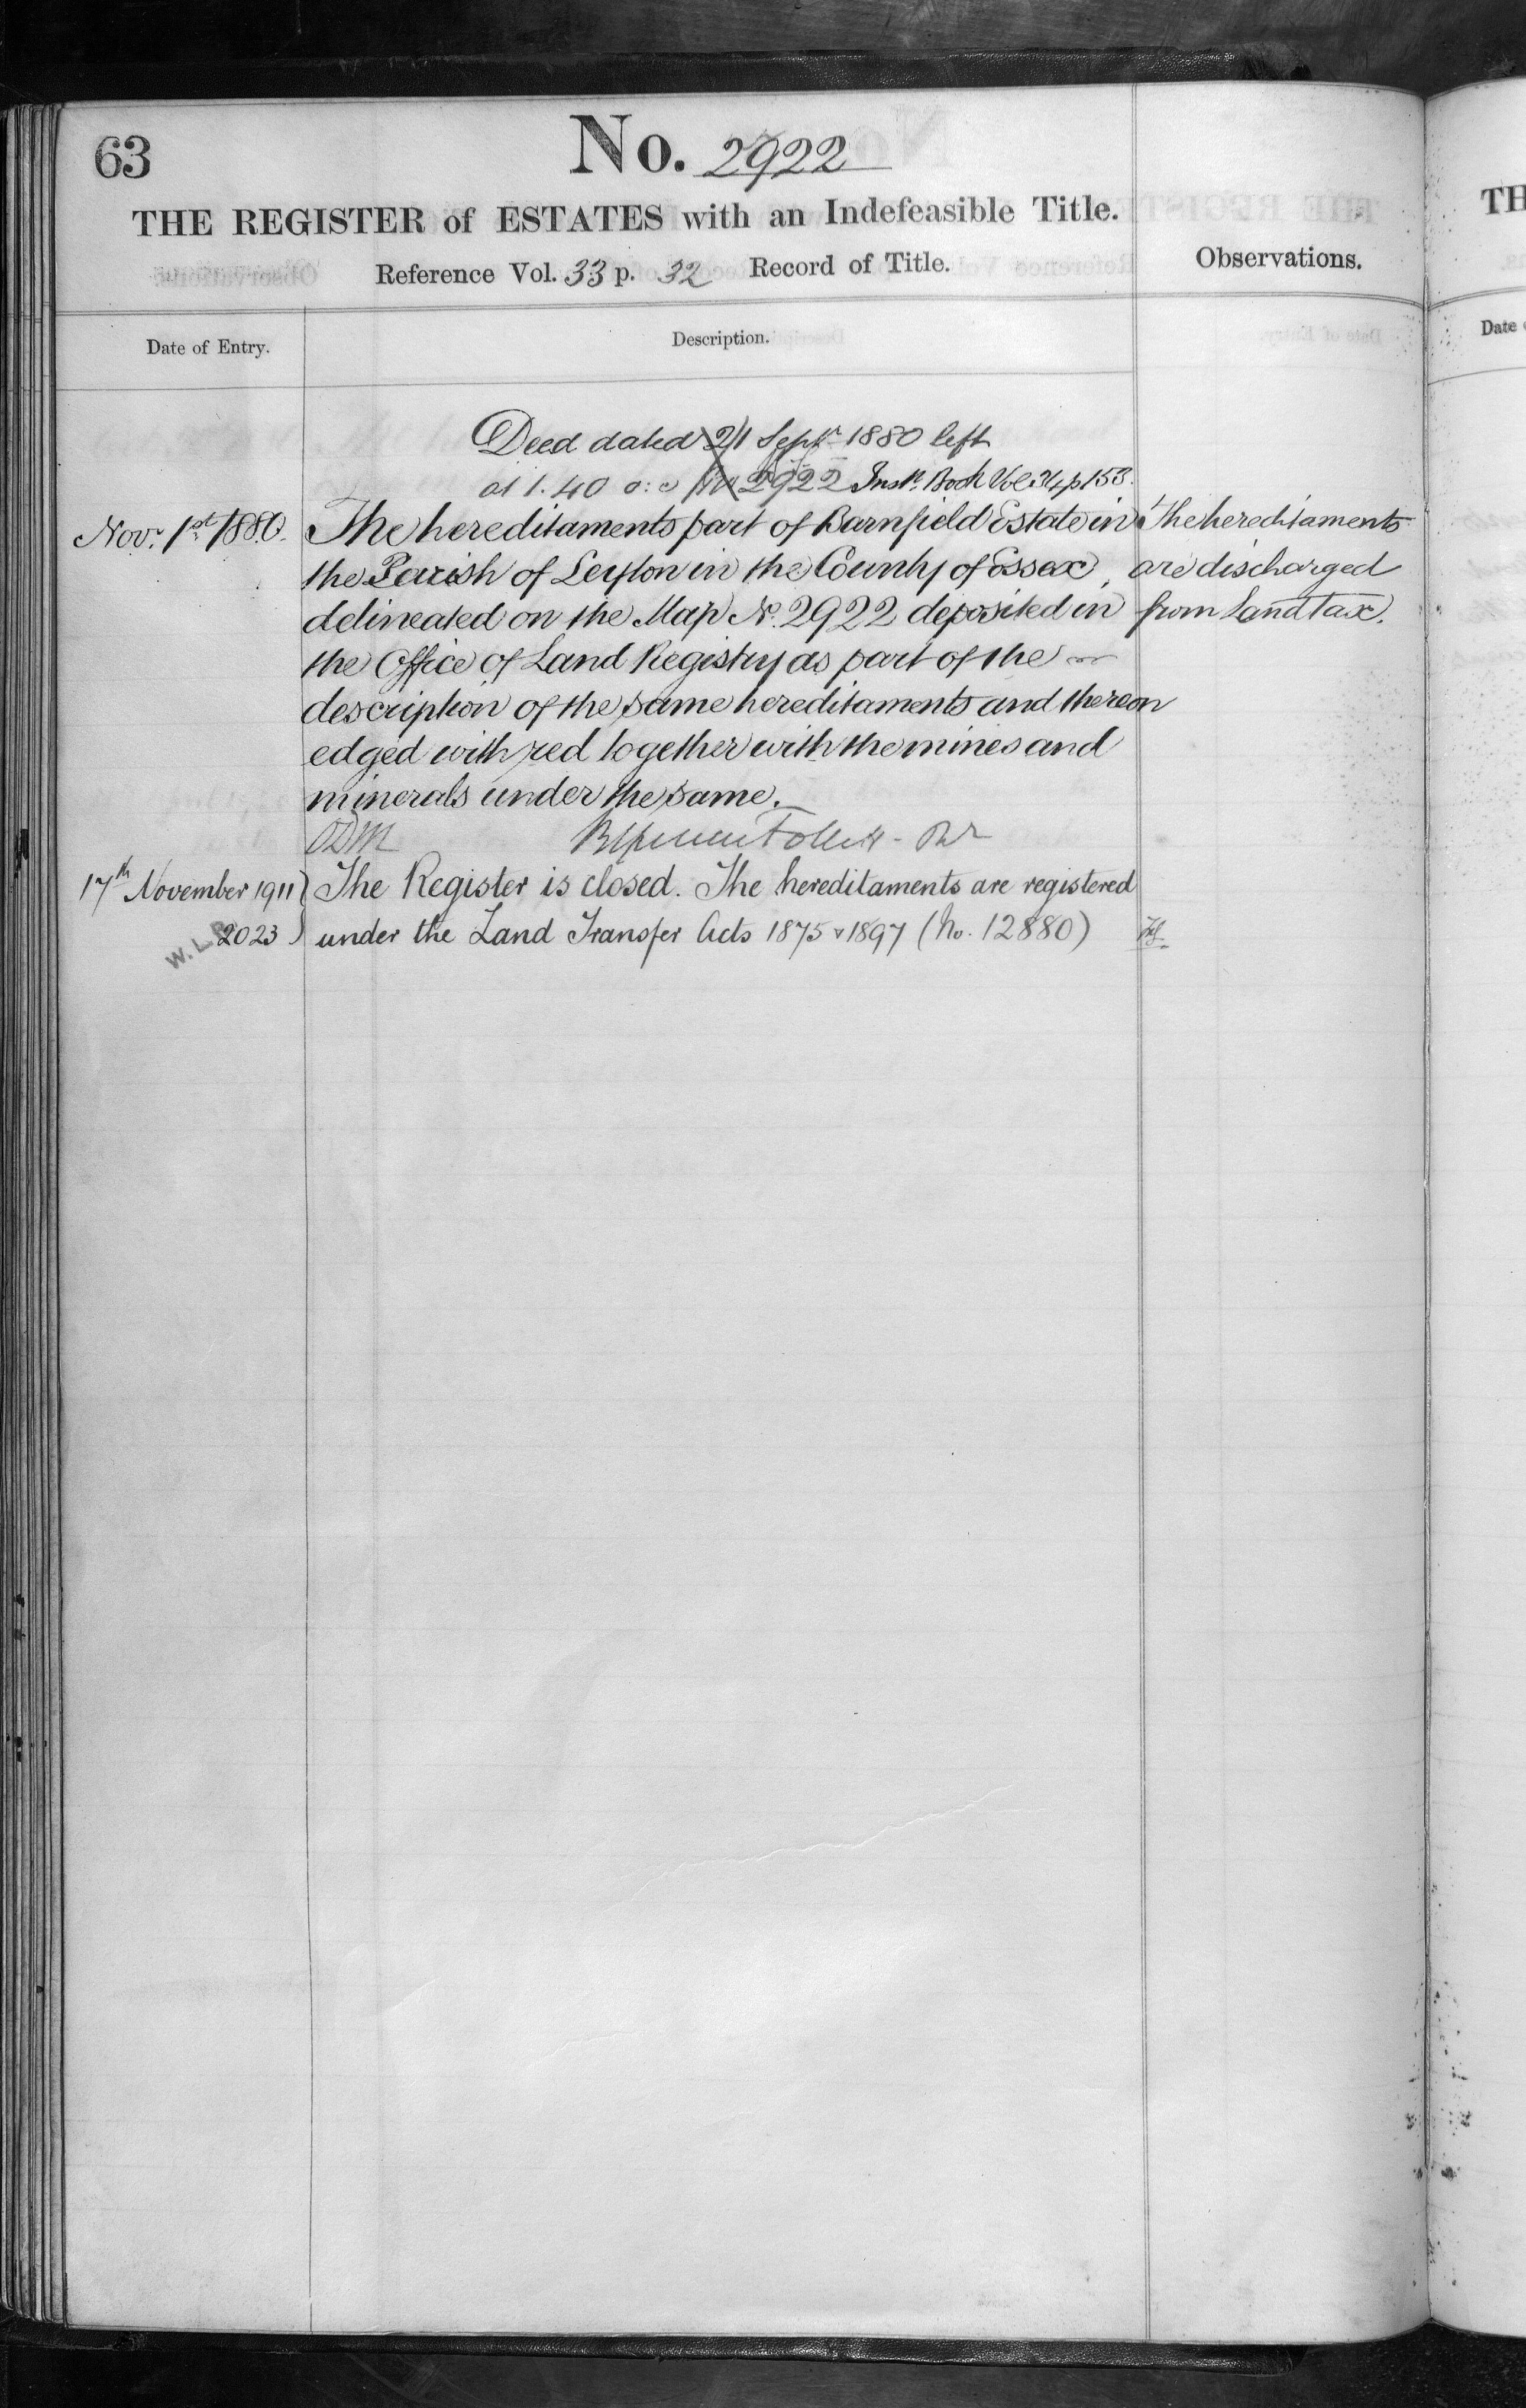 63
No. 2922
THE REGISTER of ESTATES with an Indefeasible Title.
Reference Vol. 33 p. 32 Record of Title.
Observations.
Date of Entry.
Description.
Deed dated 21 Septr 1880 left
at 1.40 2922 Inst. Book Vol p 153.
Novr. 1st 1880.
The hereditaments part of Barnfield Estate in
the Parish of Leyton in the County of Essex,
delineated on the Map No. 2922 deposited in
the Office of Land Registry as part of the
description of the same hereditaments and thereon
edged with red together with the mines and
minerals under the same.
The hereditaments
are discharged
from Land tax.
ODM
17th November 1911
2023
The Register is closed. The hereditaments are registered
under the Land Transfer Acts 1875 & 1897 (No. 12880)
TH
Date